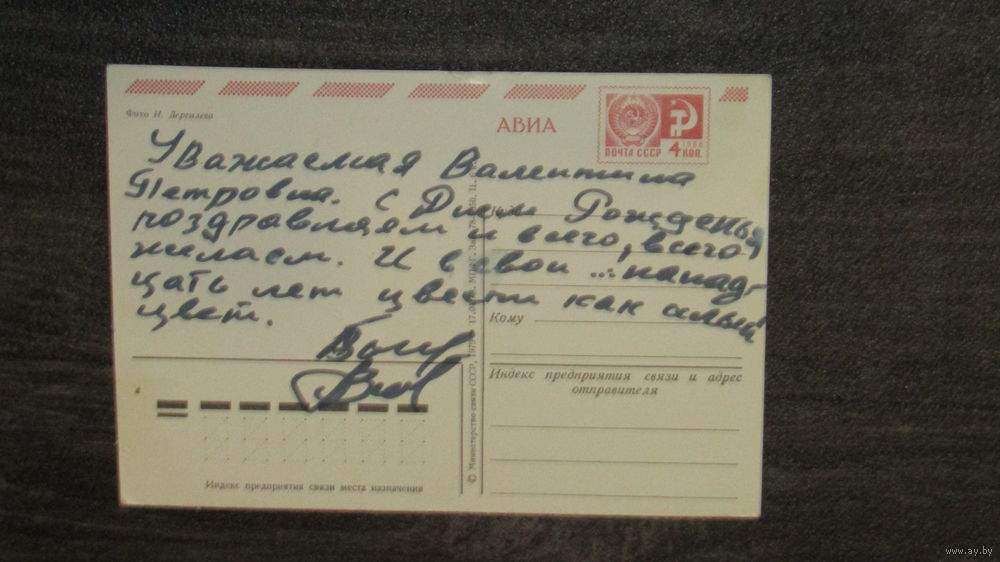 АВИА
ПОЧТА СССР 4 1966 КОП.
Фото И. Дергилева
Уважаемая Валентина
Петровна. С Днем Рожденья
поздравляем и всего, всего
желаем. И в свои ...
цать лет цвести как алый
цвет.
Куда
Кому
Индекс предприятия связи и адрес
отправителя
Индекс предприятия связи места назначения
© Министерство связи СССР, 197
www.ay.by